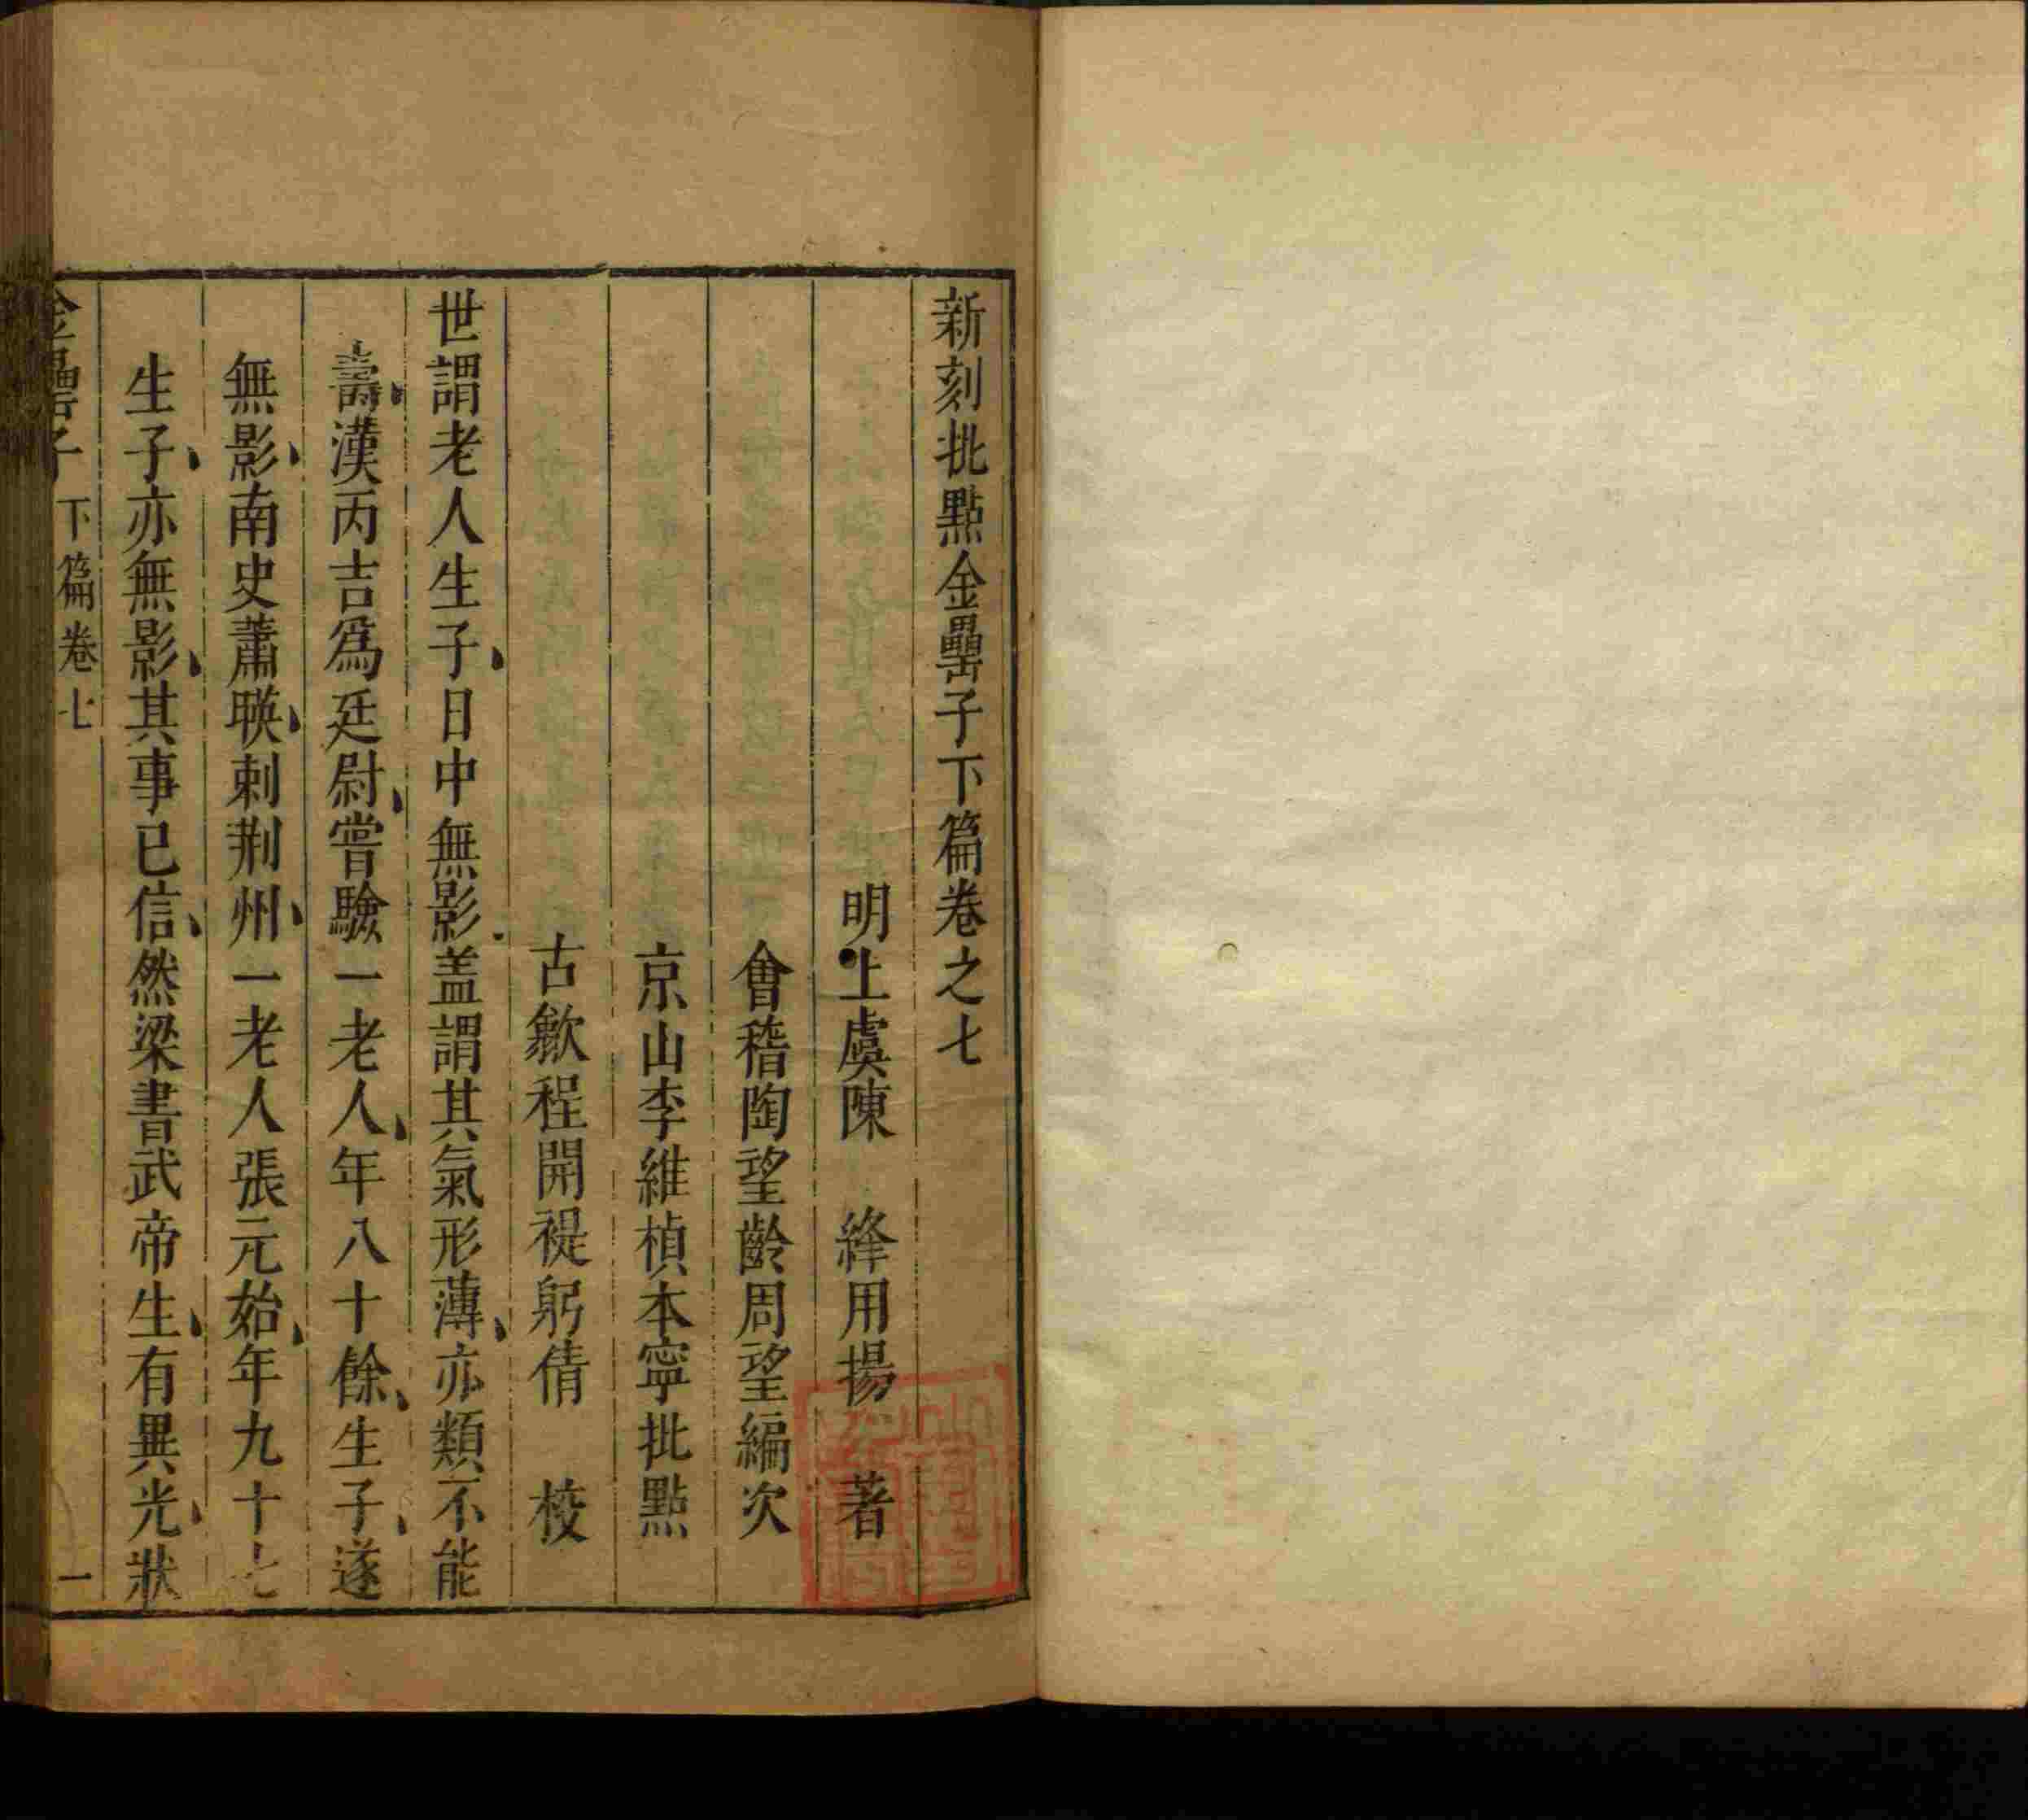 新刻批點金罍子下篇卷之七
明上虞陳　絳用揚　著
會稽陶望齡周望編次
京山李維楨本寧批點
古歙程開禔躬倩　校
世謂老人生子、日中無影.盖謂其氣形薄、亦類不能
壽、漢丙吉爲廷尉、嘗驗一老人、年八十餘、生子、遂
無影、南史蕭暎、刺荆州、一老人張元始、年九十七
生子、亦無影、其事已信、然梁書武帝生、有異光、狀
金罍子　下篇卷七　一